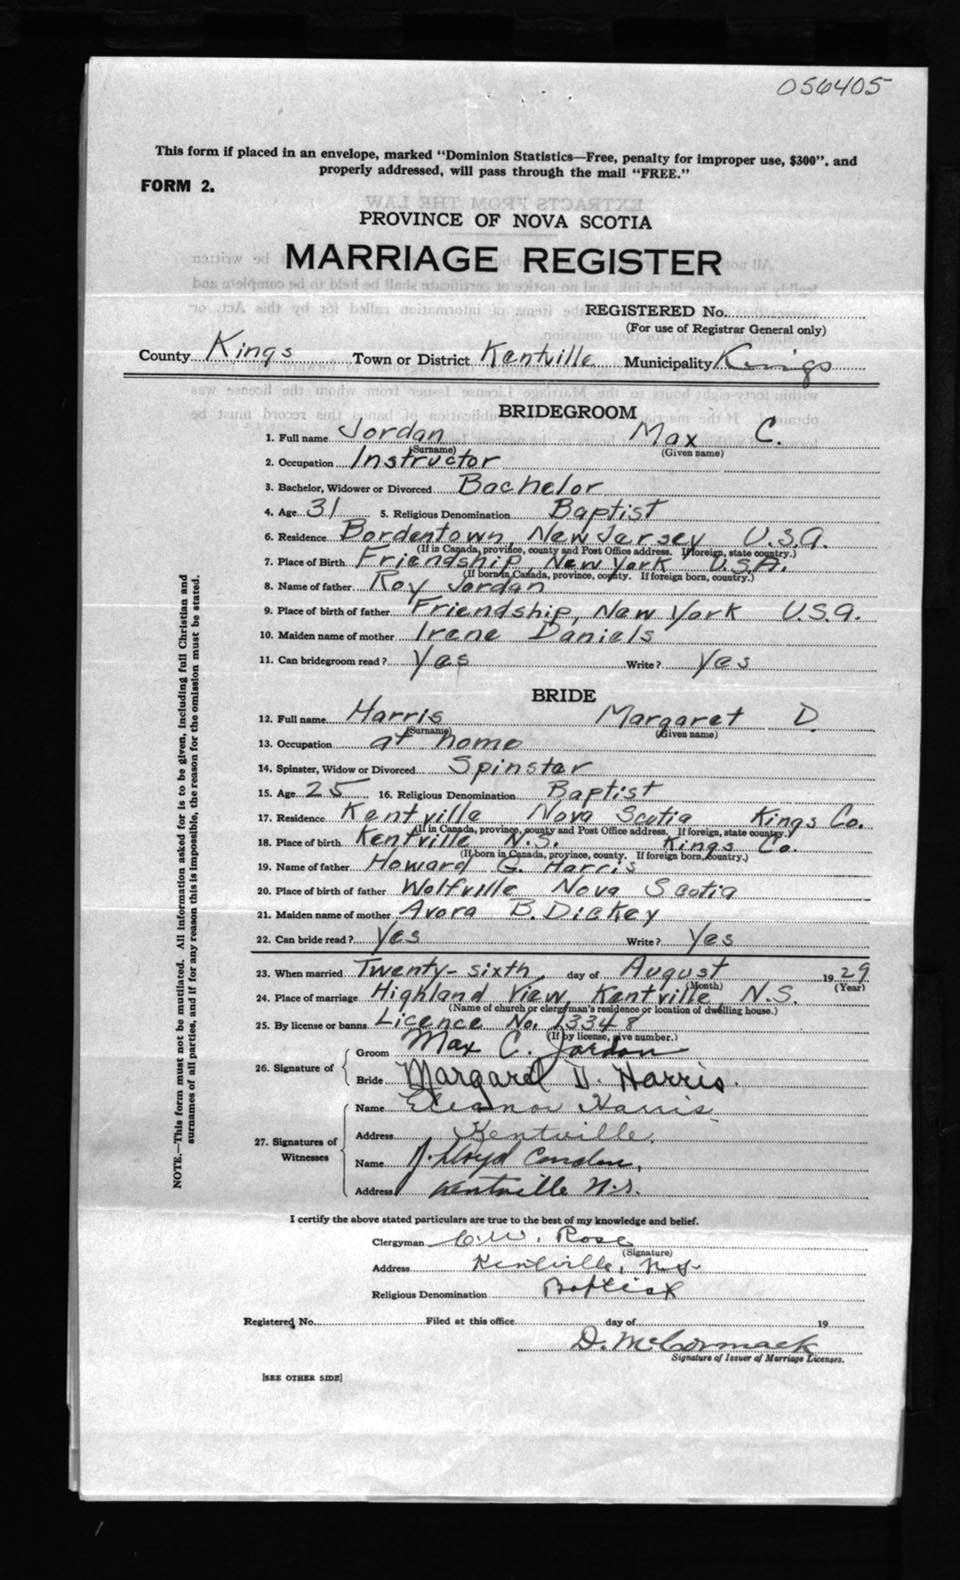 056405
This form if placed in an envelope, marked "Dominion Statistics—Free, penalty for improper use, $300", and
properly addressed, will pass through the mail "FREE."
FORM 2.
EXTRACTS FROM THE LAW
PROVINCE OF NOVA SCOTIA
MARRIAGE REGISTER
REGISTERED No.
(For use of Registrar General only)
County Kings Town or District Kentville Municipality Kings
BRIDEGROOM
1. Full name Jordan Max C.
(Surname) (Given name)
2. Occupation Instructor
3. Bachelor, Widower or Divorced Bachelor
4. Age 31 5. Religious Denomination Baptist
6. Residence Bordentown, New Jersey U.S.A.
(If in Canada, province, county and Post Office address. If foreign, state country.)
7. Place of Birth Friendship, New York U.S.A.
(If born in Canada, province, county. If foreign born, country.)
8. Name of father Roy Jordan
9. Place of birth of father Friendship, New York U.S.A.
10. Maiden name of mother Irene Daniels
11. Can bridegroom read? Yes Write? Yes
BRIDE
12. Full name Harris Margaret D.
(Surname) (Given name)
13. Occupation at home
14. Spinster, Widow or Divorced Spinster
15. Age 25 16. Religious Denomination Baptist
17. Residence Kentville Nova Scotia Kings Co.
(If in Canada, province, county and Post Office address. If foreign, state country.)
18. Place of birth Kentville N.S. Kings Co.
(If born in Canada, province, county. If foreign born, country.)
19. Name of father Howard G. Harris
20. Place of birth of father Wolfville Nova Scotia
21. Maiden name of mother Avora B. Dickey
22. Can bride read? Yes Write? Yes
23. When married Twenty-sixth day of August 1929
(Month) (Year)
24. Place of marriage Highland View, Kentville, N.S.
(Name of church or clergyman's residence or location of dwelling house.)
25. By license or banns Licence No. 13348
(If by license, give number.)
26. Signature of
Groom Max C. Jordan
Bride Margaret D. Harris.
27. Signatures of Witnesses
Name Eleanor Harris
Address Kentville.
Name J. Lloyd Condon,
Address Kentville N.S.
I certify the above stated particulars are true to the best of my knowledge and belief.
Clergyman C. W. Rose
(Signature)
Address Kentville, N.S.
Religious Denomination Baptist
Registered No. Filed at this office day of 19
D. McCormack
Signature of Issuer of Marriage Licenses.
[SEE OTHER SIDE]
NOTE.—This form must not be mutilated. All information asked for is to be given, including full Christian and
surnames of all parties, and if for any reason this is impossible, the reason for the omission must be stated.